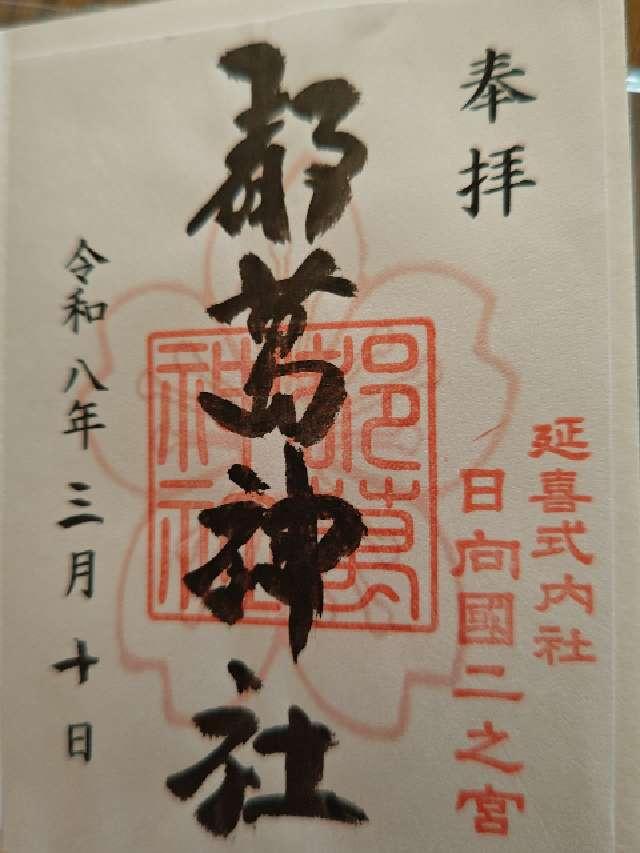 奉拝
延喜式内社
日向國二之宮
都萬神社
都萬神社
令和八年三月十日